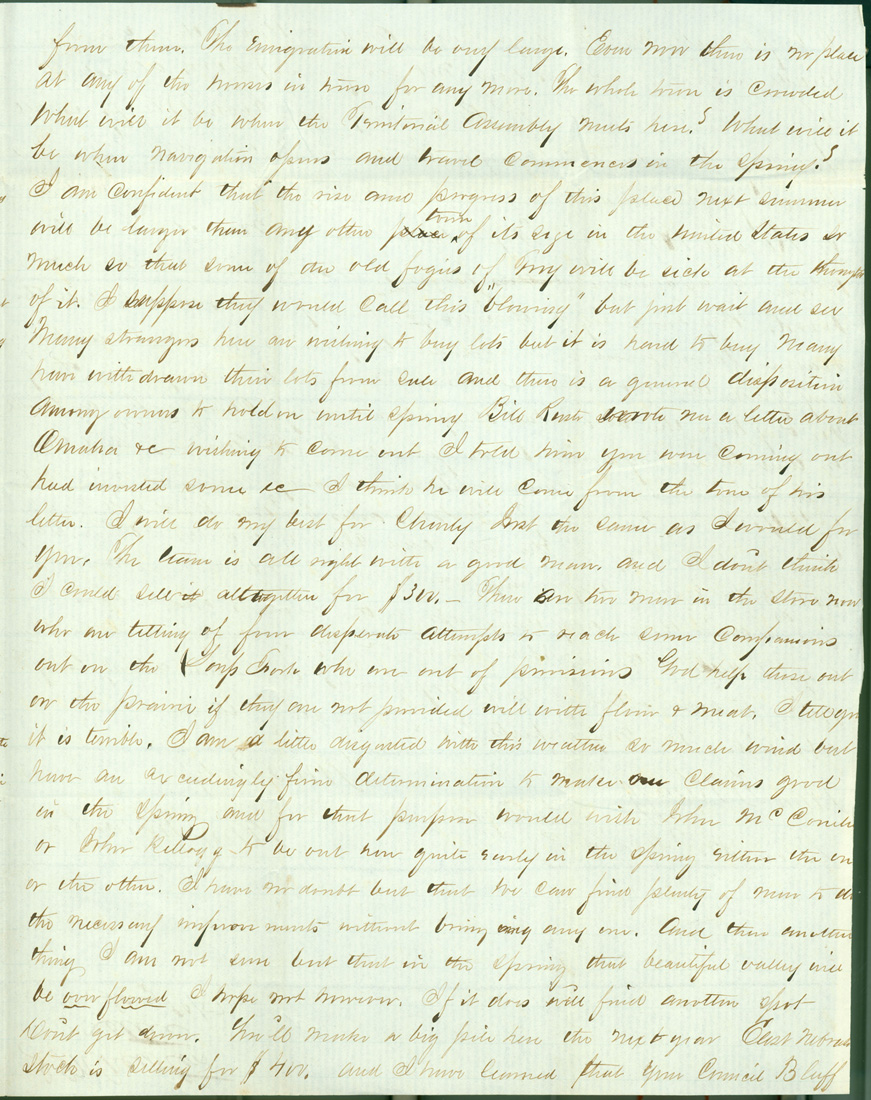 from them. The Emigration will be very large. Even now there is no place
at any of the houses in town for any more. The whole town is crowded
What will it be when the Territorial Assembly meets here? What will it
be when navigation opens and travel commences in the spring?
I am confident that the rise and progress of this place next summer
will be larger than any other place town of its size in the United States so
much so that some of the old fogies of Troy will be sick at the thought
of it. I suppose they would call this "blowing" but just wait and see
Many strangers here are wishing to buy lots but it is hard to buy Many
have withdrawn their lots from sale and there is a general disposition
among owners to hold on until spring Bill wrote me a letter about
Omaha &c wishing to come out I told him you were coming out
had invested some &c I think he will come from the tone of his
letter. I will do my best for Charly Just the same as I would for
you. The team is all right with a good man. and I don't think
I could sell it altogether for $300. – There are two men in the store now
who are telling of four desperate attempts to reach some Companions
out on the Loup Fork who are out of provisions God help those out
on the prairie if they are not provided well with flour & meat. I tell you
it is terrible. I am a little disgusted with this weather so much wind but
have an exceedingly firm determination to make our claims good
in the spring and for that purpose would wish John McConihe
or John Kellogg to be out here quite early in the spring either the one
or the other. I have no doubt but that we can find plenty of men to do
the necessary improvements without bringing any one. And then another
thing I am not sure but that in the spring that beautiful valley will
be overflowed I hope not however. If it does we'll find another spot
Don't get down. We'll make a big pile here the next year East Nebraska
Stock is selling for $400. and I have learned that your Council Bluff